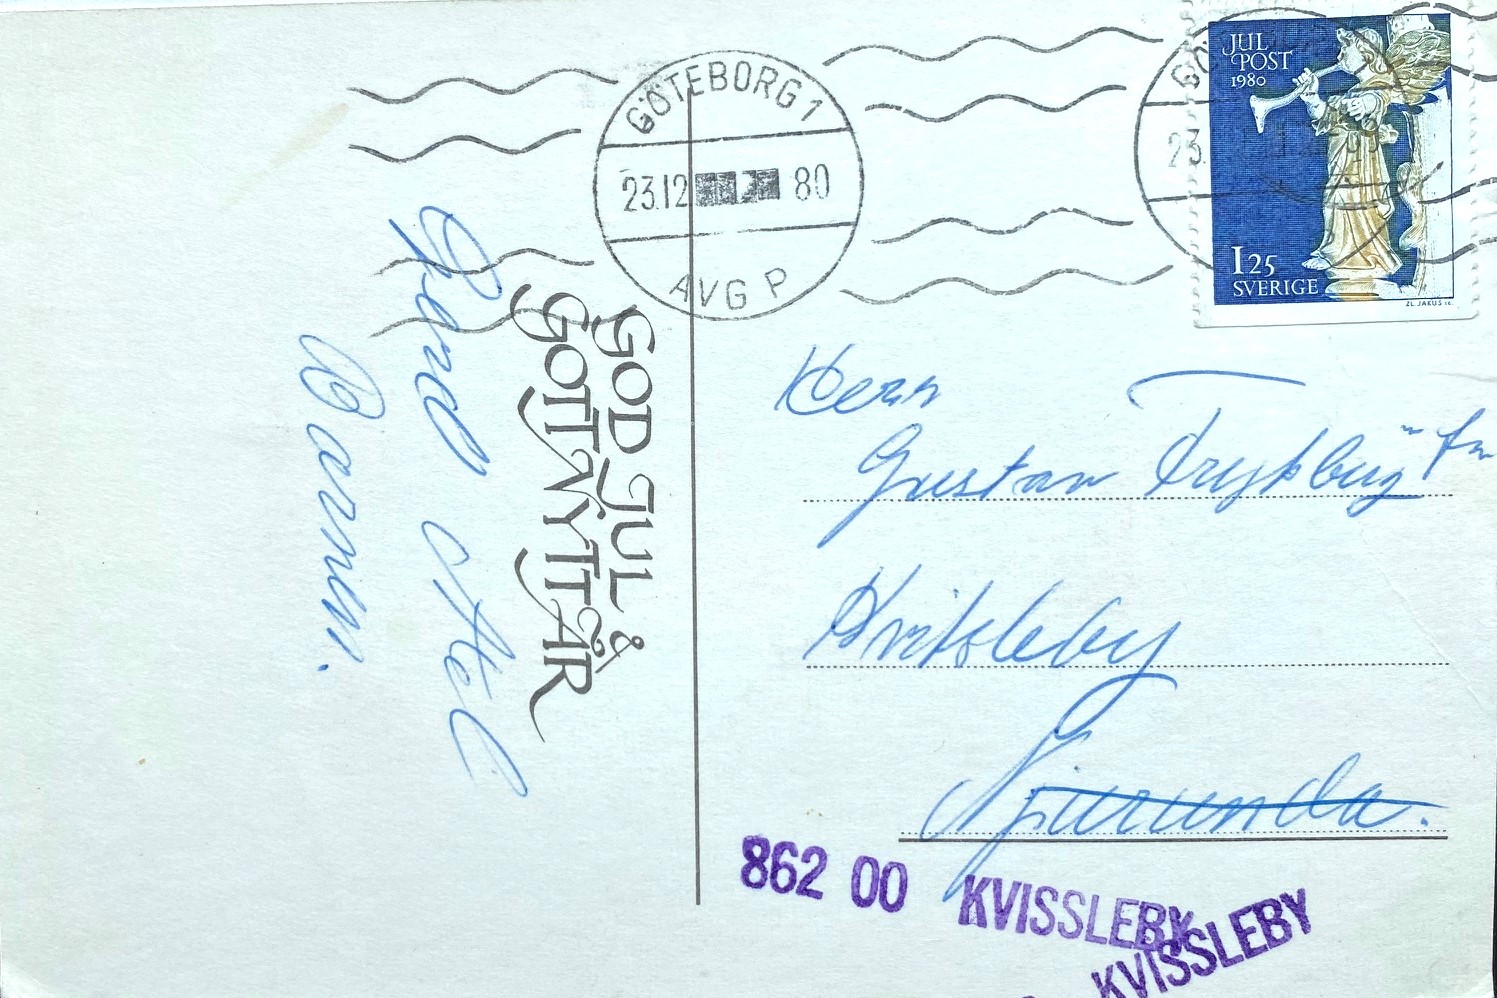 GÖTEBORG 1
23.12 80
AVG P
JUL
POST
1980
1 25
SVERIGE
ZL. JAKUS SC.
GOD JUL &
GOTT NYTT ÅR
Barnen.
Herr
Gustav
Kvissleby
Njurunda.
862 00 KVISSLEBY
KVISSLEBY